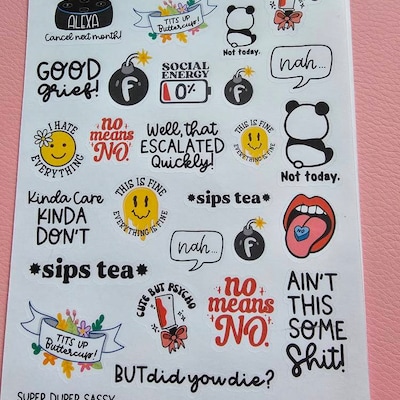 ALEXA
Cancel next month!
TITS UP
Buttercup!
Not today.
GOOD
grief!
F
SOCIAL
ENERGY
0%
F
nah...
I HATE
EVERYTHING
no
means
NO.
Well, that
ESCALATED
Quickly!
THIS IS FINE
EVERYTHING IS FINE
Not today.
Kinda Care
KINDA
DON'T
THIS IS FINE
EVERYTHING IS FINE
*sips tea*
NO
nah...
F
*sips tea*
TITS UP
Buttercup!
CUTE BUT PSYCHO
no
means
NO.
AIN'T
THIS
SOME
Shit!
BUT did you die?
SUPER DUPER SASSY